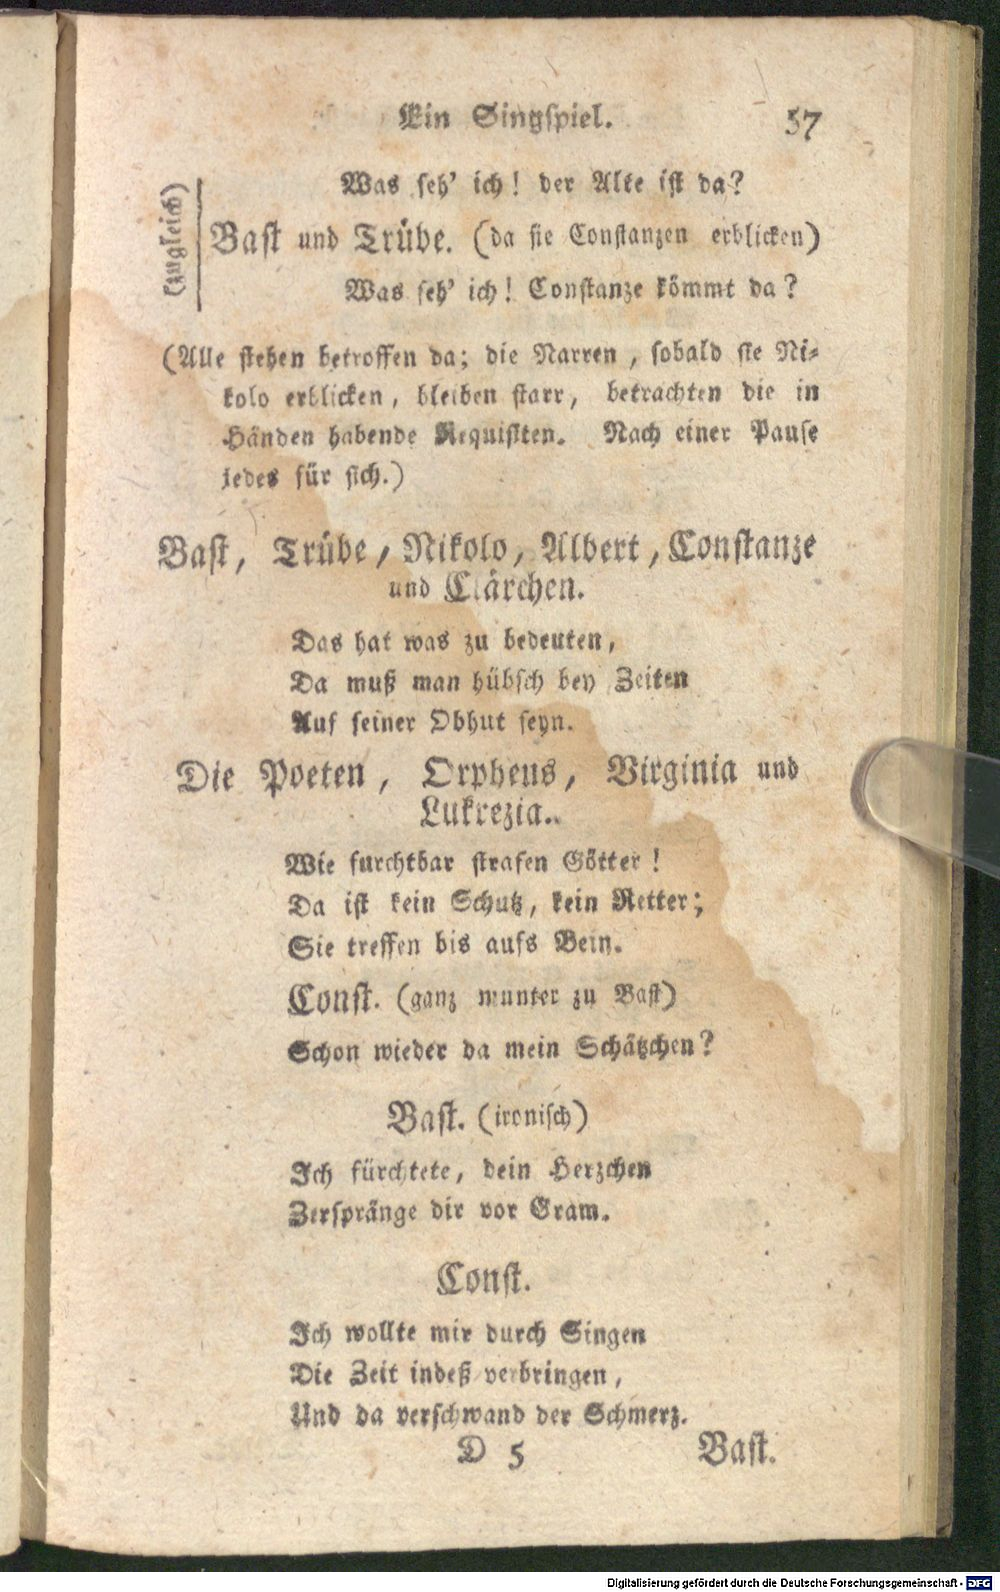 Ein Singspiel. 57
Was seh' ich! der Alte ist da?
(zugleich)
Bast und Trübe. (da sie Constanzen erblicken)
Was seh' ich! Constanze kömmt da?
(Alle stehen betroffen da; die Narren, sobald sie Ni-
kolo erblicken, bleiben starr, betrachten die in
Händen habende Requisiten. Nach einer Pause
jedes für sich.)
Bast, Trübe, Nikolo, Albert, Constanze
und Clärchen.
Das hat was zu bedeuten,
Da muß man hübsch bey Zeiten
Auf seiner Obhut seyn.
Die Poeten, Orpheus, Virginia und
Lukrezia..
Wie furchtbar strafen Götter!
Da ist kein Schutz, kein Retter;
Sie treffen bis aufs Bein.
Const. (ganz munter zu Bast)
Schon wieder da mein Schätzchen?
Bast. (ironisch)
Ich fürchtete, dein Herzchen
Zerspränge dir vor Gram.
Const.
Ich wollte mir durch Singen
Die Zeit indeß verbringen,
Und da verschwand der Schmerz.
D 5 Bast.
Digitalisierung gefördert durch die Deutsche Forschungsgemeinschaft - DFG